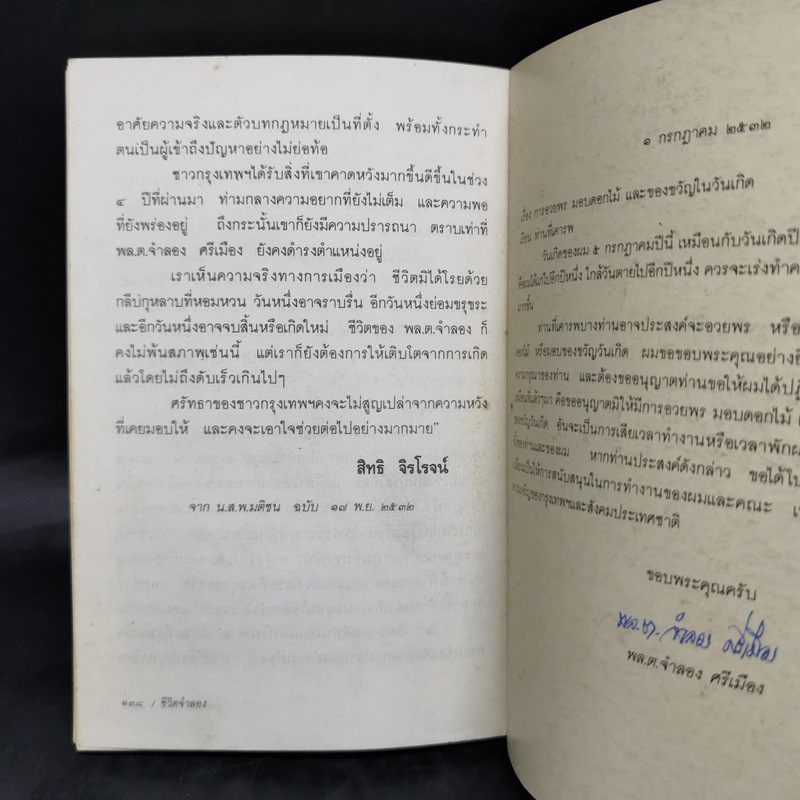 อาศัยความจริงและตัวบทกฎหมายเป็นที่ตั้ง พร้อมทั้งกระทำ
ตนเป็นผู้เข้าถึงปัญหาอย่างไม่ย่อท้อ
ชาวกรุงเทพฯได้รับสิ่งที่เขาคาดหวังมากขึ้นดีขึ้นในช่วง
๔ ปีที่ผ่านมา ท่ามกลางความอยากที่ยังไม่เต็ม และความพอ
ที่ยังพร่องอยู่ ถึงกระนั้นเขาก็ยังมีความปรารถนา ตราบเท่าที่
พล.ต.จำลอง ศรีเมือง ยังคงดำรงตำแหน่งอยู่
เราเห็นความจริงทางการเมืองว่า ชีวิตมิได้โรยด้วย
กลีบกุหลาบที่หอมหวน วันหนึ่งอาจราบรื่น อีกวันหนึ่งย่อมขรุขระ
และอีกวันหนึ่งอาจจบสิ้นหรือเกิดใหม่ ชีวิตของ พล.ต.จำลอง ก็
คงไม่พ้นสภาพเช่นนี้ แต่เราก็ยังต้องการให้เติบโตจากการเกิด
แล้วโดยไม่ถึงดับเร็วเกินไปๆ
ศรัทธาของชาวกรุงเทพฯคงจะไม่สูญเปล่าจากความหวัง
ที่เคยมอบให้ และคงจะเอาใจช่วยต่อไปอย่างมากมาย”
สิทธิ จิรโรจน์
จาก น.ส.พ.มติชน ฉบับ ๑๗ พ.ย. ๒๕๓๒
๑๓๘ / ชีวิตจำลอง
๑ กรกฎาคม ๒๕๓๒
เรื่อง การอวยพร มอบดอกไม้ และของขวัญในวันเกิด
เรียน ท่านที่เคารพ
วันเกิดของผม ๕ กรกฎาคมปีนี้ เหมือนกับวันเกิดปี
คือผมได้แก่ไปอีกปีหนึ่ง ใกล้วันตายไปอีกปีหนึ่ง ควรจะเร่งทำ
มากขึ้น
ท่านที่เคารพบางท่านอาจประสงค์จะอวยพร หรือ
ดอกไม้ หรือมอบของขวัญวันเกิด ผมขอขอบพระคุณอย่าง
ความกรุณาของท่าน และต้องขออนุญาตท่านขอให้ผมได้
เหมือนที่แล้วๆมา คือขออนุญาตมิให้มีการอวยพร มอบดอกไม้
ของขวัญวันเกิด อันจะเป็นการเสียเวลาทำงานหรือเวลาพักผ่
ทั้งของท่านและของผม หากท่านประสงค์ดังกล่าว ขอได้โป
เปลี่ยนเป็นให้การสนับสนุนในการทำงานของผมและคณะ
ความเจริญของกรุงเทพฯและสังคมประเทศชาติ
ขอบพระคุณครับ
พล.ต. จำลอง ศรีเมือง
พล.ต.จำลอง ศรีเมือง